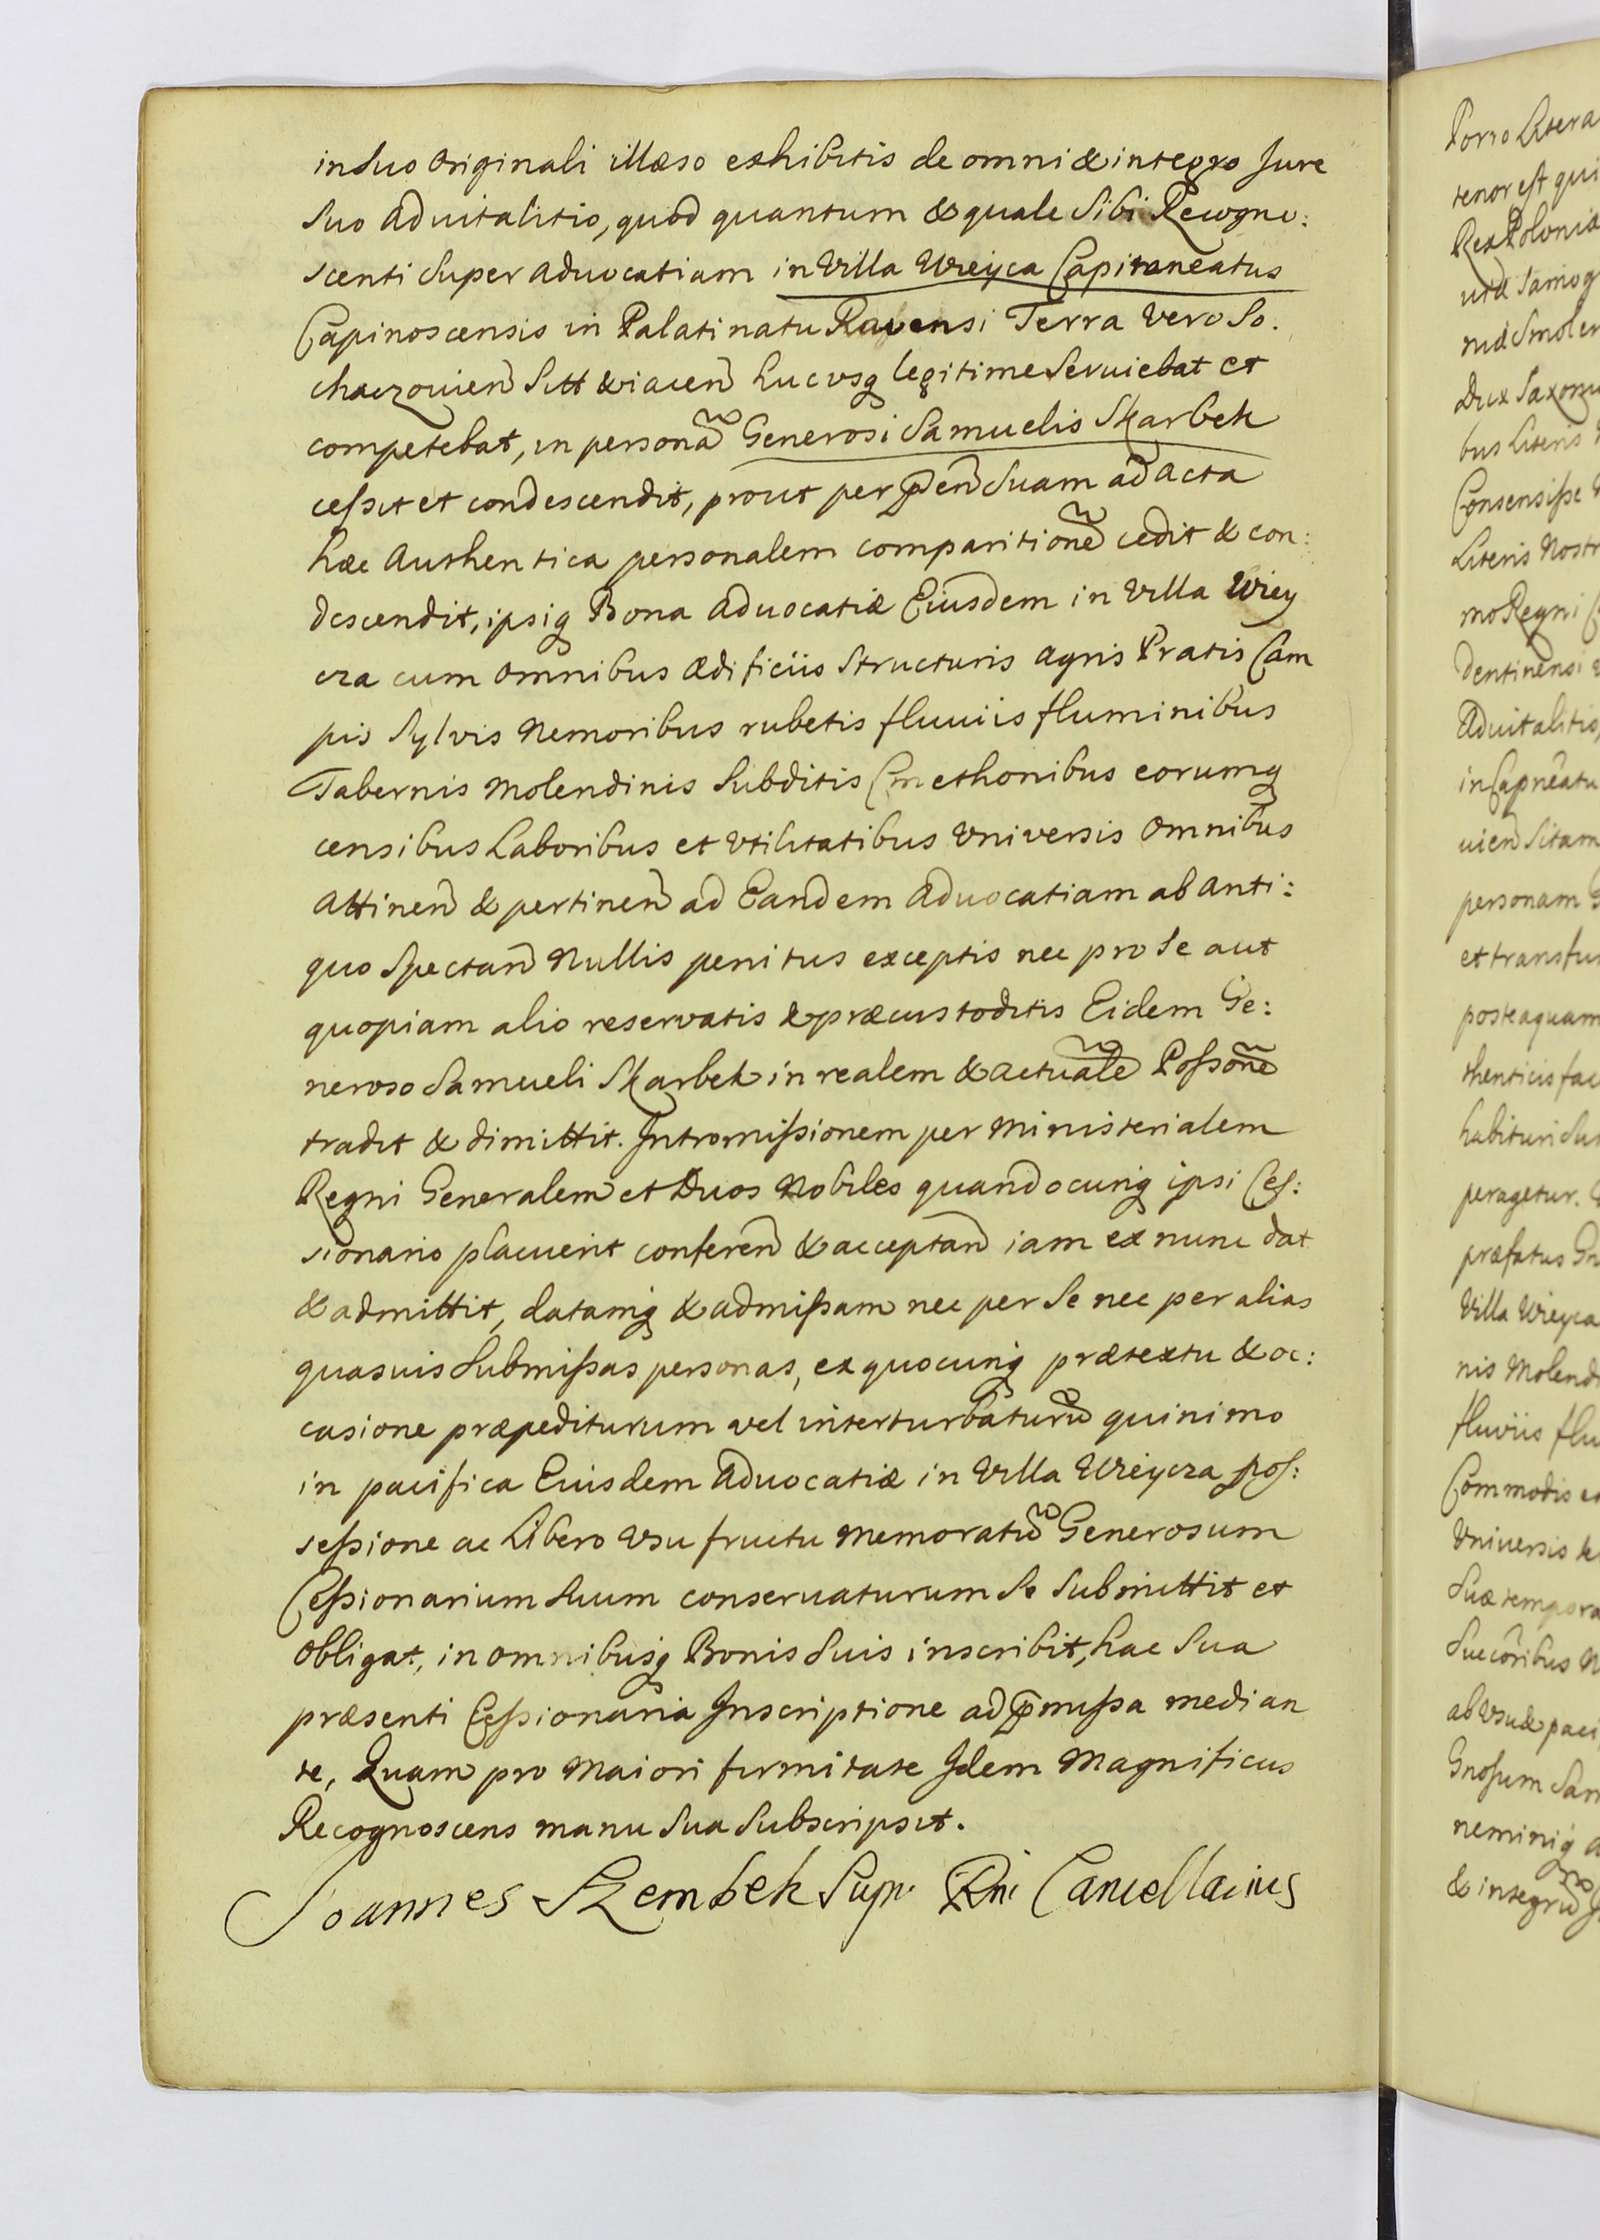 in suo Originali illæso exhibitis de omni & integro Jure
suo aduitalitio, quod quantum & quale sibi Recogno:
scenti super aduocatiam in Villa Wreyca Capitaneatus
Capinoscensis in Palatinatu Ravensi Terra vero So.
chaczouien̄ sitt & iacen̄ hucvsq legitime seruiebat et
competebat, in personā Generosi Samuelis Skarbek
cessit et condescendit, prout per p̄en̄ suam ad acta
hæc Authentica personalem comparitionē cedit & con:
descendit, ipsiq Bona aduocatiæ Eiusdem in Villa Wrey
cza cum omnibus ædificiis structuris agris Pratis Cam
pis Sylvis Nemoribus rubetis fluuiis fluminibus
Tabernis Molendinis subditis Cmethonibus eorumq
censibus Laboribus et vtilitatibus vniversis omnibus
attinen̄ & pertinen̄ ad Eandem aduocatiam ab anti:
quo spectan̄ Nullis penitus exceptis nec pro se aut
quopiam alio reservatis & præcustoditis Eidem Ge:
neroso Samueli Skarbek in realem & actualē Possonē
tradit & dimittit. Intromissionem per Ministerialem
Regni Generalem et Duos Nobiles quandocunq ipsi Ces:
sionario placuerit conferen̄ & acceptan̄ iam ex nunc dat
& admittit, datamq & admissam nec per se nec per alias
quasuis submissas personas, ex quocunq prætextu & oc:
casione præpediturum vel interturbaturū quinimo
in pacifica Eiusdem aduocatiæ in Villa Wreycza pos:
sessione ac Libero vsu fructu memoratū Generosum
Cessionarium suum conseruaturum se submittit et
obligat, in omnibusq Bonis suis inscribit, hac sua
præsenti Cessionaria Inscriptione ad p̄missa median
te, Quam pro maiori firmitate Idem Magnificus
Recognoscens manu sua subscripsit.
Joannes Szembek Sup. Rni Cancellarius
Porro Litera
tenor est qui
Rex Poloniæ
Dux Saxoniæ
bus Literis
Consensisse
Literis Nostr
mo Regni
dentinensi
aduitalitio,
in Capneatu
uien̄ sitam
personam G
et transfu
posteaquam
thenticis fac
habituri
peragetur.
præfatus Gn
Villa Wreyca
nis Molend
fluviis flu
Commodis
Vniuersis
suæ tempora
Succōribus N
ab vsu & paci
Gnosum Sam
neminiq
& integrū